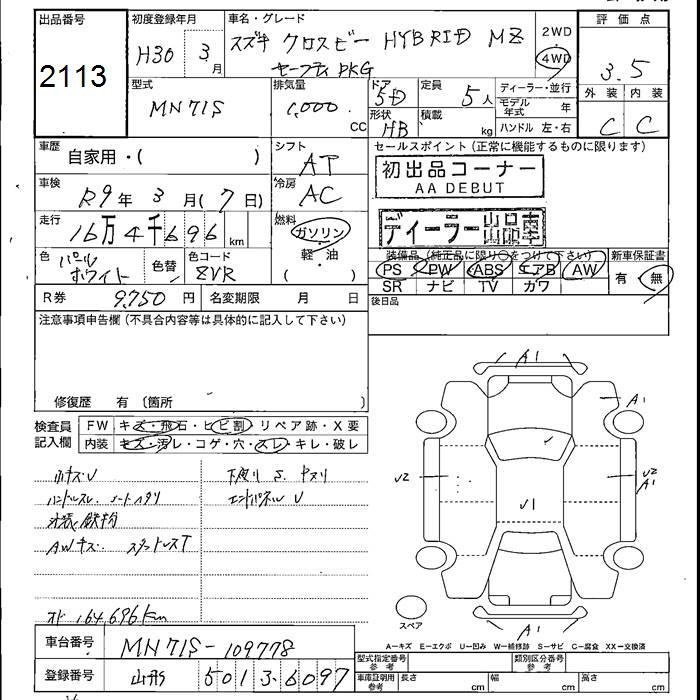 出品番号
2113
初度登録年月
H30 3月
車名・グレード
スズキ クロスビー HYBRID MZ
セーフティPKG
2WD
4WD
評価点
3.5
外装 内装
C C
型式
MN71S
排気量
1,000
CC
ドア
5D
形状
HB
定員
5人
積載
kg
ディーラー・並行
モデル年式 年
ハンドル 左・右
車歴
自家用・( )
シフト
AT
セールスポイント (正常に機能するものに限ります)
初出品コーナー
AA DEBUT
ディーラー出品車
車検
R9年 3月(7日)
冷房
AC
走行
16万4千696
km
燃料
ガソリン
軽・油
色
パール
ホワイト
色替
色コード
ZVR
装備品 (純正品に限り○をつけて下さい)
PS PW ABS エアB AW
SR ナビ TV カワ
新車保証書
有 無
R券 9,750 円
名変期限 月 日
後日品
注意事項申告欄(不具合内容等は具体的に記入して下さい)
修復歴 有 〔箇所 〕
検査員
記入欄
FW キズ・飛石・ヒビ割・リペア跡・X要
内装 キズ・汚レ・コゲ・穴・スレ・キレ・破レ
ハンドルスレ シートヘタリ
外装鉄粉
AWキズ
下廻り S
エンドパネル U
オド 164,696km
A1
A1
U2
U1
U2
A1
A1
スペア
A-キズ E-エクボ U-凹み W-補修跡 S-サビ C-腐食 XX-交換済
車台番号
MN71S-109778
登録番号
山形 501 3 6097
型式指定番号
参考
類別区分番号
参考
車庫証明用
参考
長さ cm
幅 cm
高さ cm